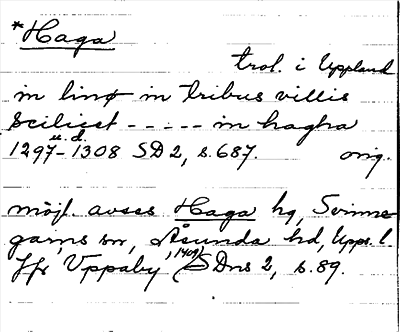 *Haga
trol. i Uppland
in linø in tribus villis
scilicet - - - - - in hagha
u. d.
1297 - 1308 SD 2, s. 687. orig.
möjl. avses Haga hg, Svinne-
garns sn, Åsunda hd, Upps. l.
Jfr Vppaby (1409) SDns 2, s. 89.